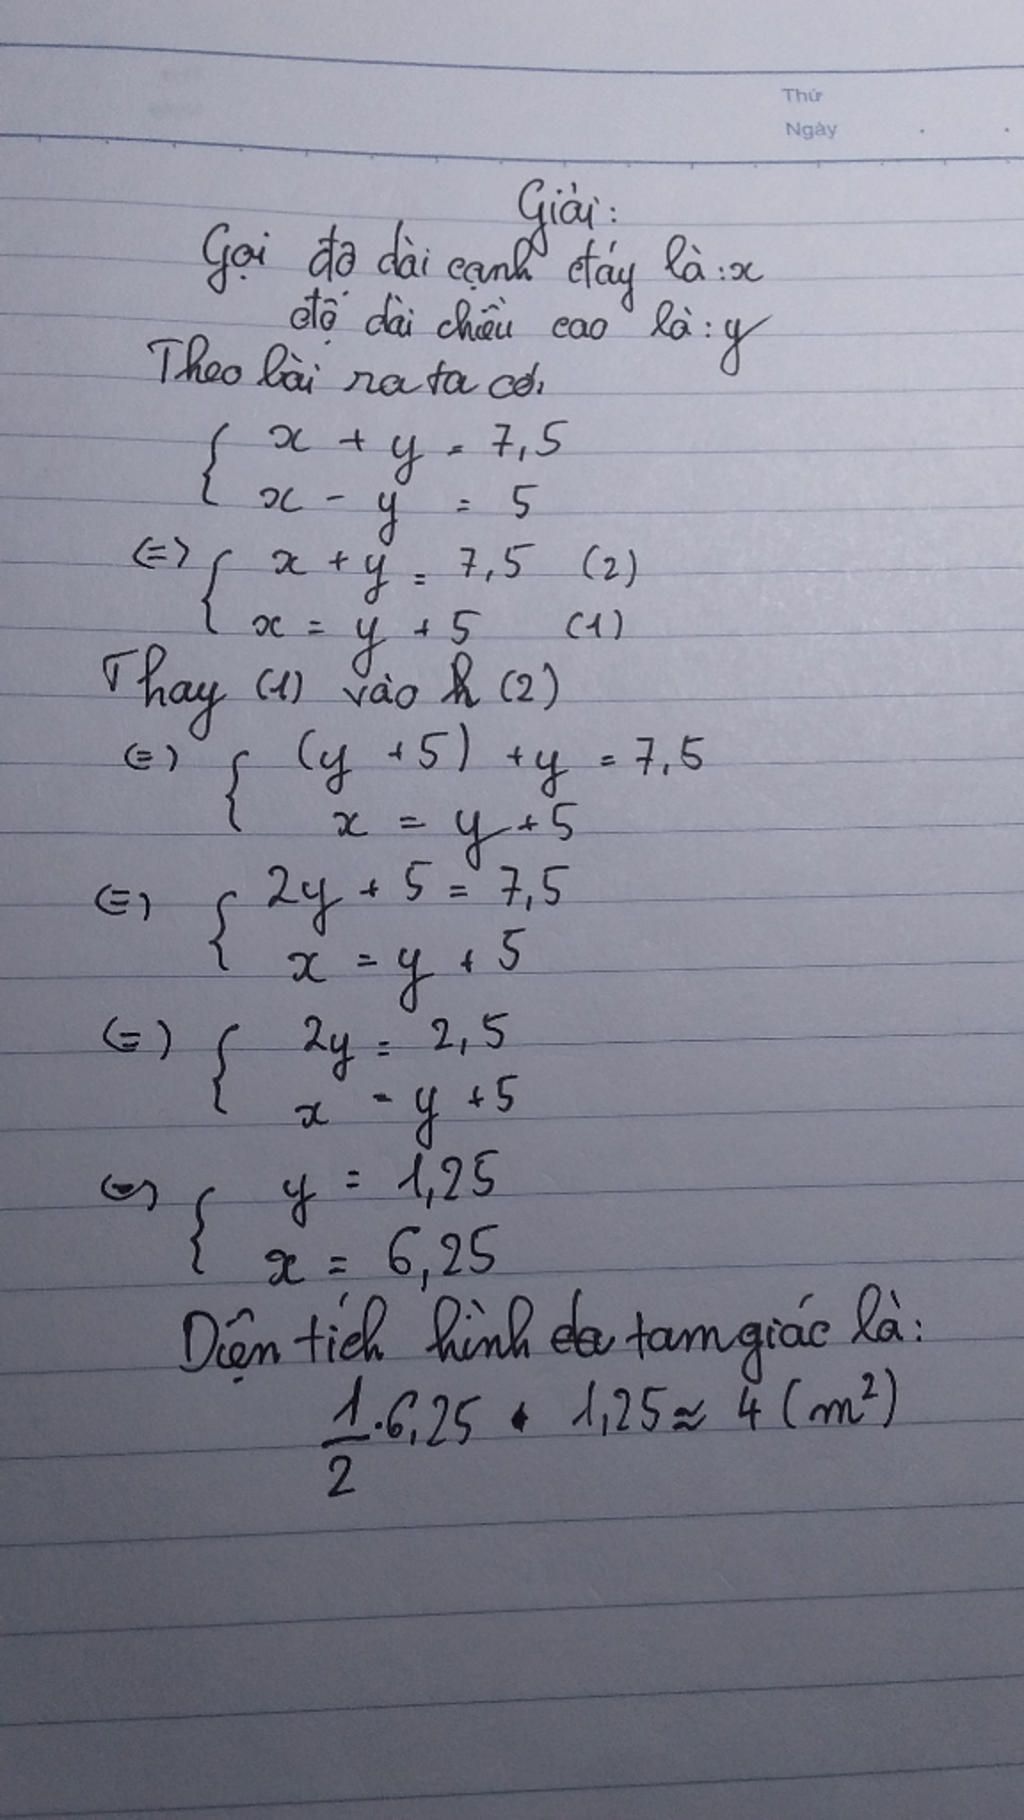 Thứ
Ngày
Giải:
Gọi độ dài cạnh đáy là: x
độ dài chiều cao là: y
Theo bài ra ta có:
{ x + y = 7,5
x - y = 5
(=) { x + y = 7,5 (2)
x = y + 5 (1)
Thay (1) vào (2)
(=) { (y + 5) + y = 7,5
x = y + 5
(=) { 2y + 5 = 7,5
x = y + 5
(=) { 2y = 2,5
x = y + 5
(=) { y = 1,25
x = 6,25
Diện tích hình tam giác là:
1/2 . 6,25 . 1,25 ≈ 4 (m²)